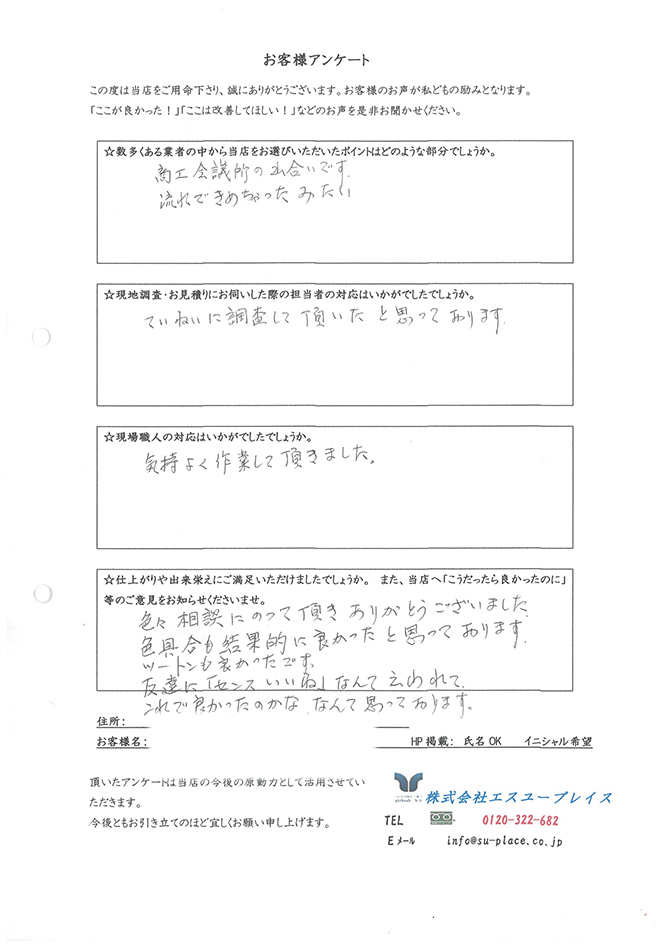 お客様アンケート
この度は当店をご用命下さり、誠にありがとうございます。お客様のお声が私どもの励みとなります。
「ここが良かった！」「ここは改善してほしい！」などのお声を是非お聞かせください。
☆数多くある業者の中から当店をお選びいただいたポイントはどのような部分でしょうか。
商工会議所の出合いです.
流れできめちゃったみたい
☆現地調査・お見積りにお伺いした際の担当者の対応はいかがでしたでしょうか。
ていねいに調査して頂いたと思っております.
☆現場職人の対応はいかがでしたでしょうか。
気持よく作業して頂きました。
☆仕上がりや出来栄えにご満足いただけましたでしょうか。 また、当店へ「こうだったら良かったのに」
等のご意見をお知らせくださいませ。
色々相談にのって頂きありがとうございました.
色具合も結果的に良かったと思っております.
ツートンも良かったです。
友達に「センスいいね」なんて云われて.
これで良かったのかな.なんて思っております。
住所:
お客様名:
HP掲載: 氏名OK イニシャル希望
頂いたアンケートは当店の今後の原動力として活用させてい
ただきます。
今後ともお引き立てのほど宜しくお願い申し上げます。
株式会社エスユープレイス
TEL 0120-322-682
Eメール info@su-place.co.jp